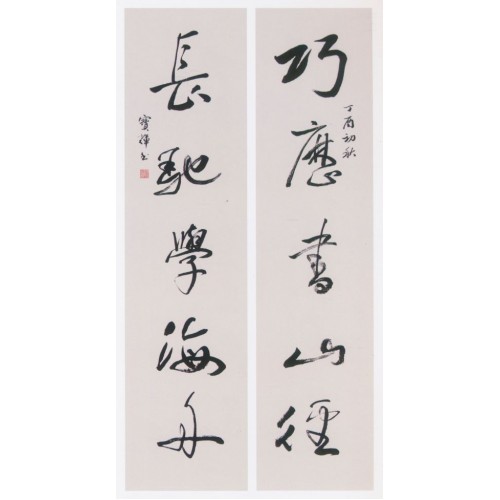 巧歷書山徑
丁酉初秋
長馳學海舟
寶祥書